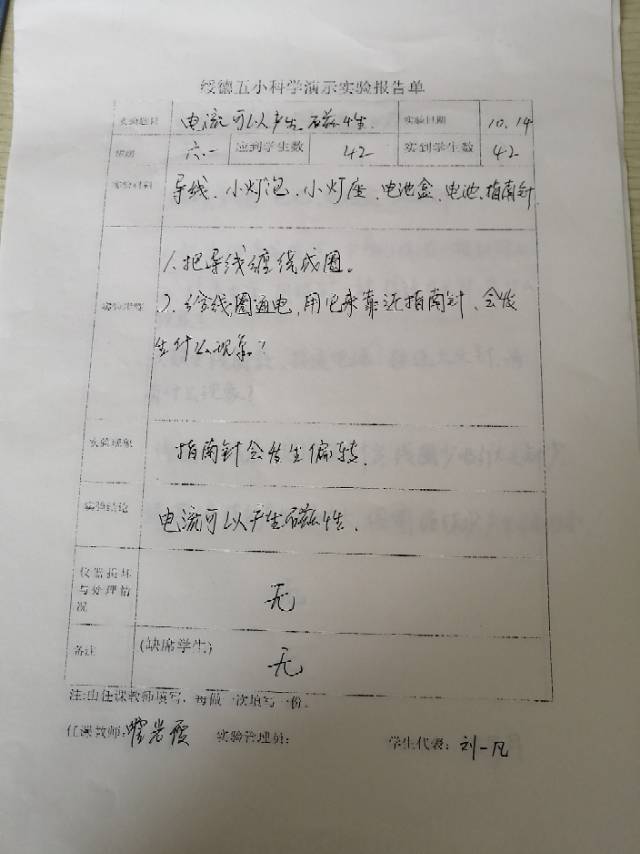 绥德五小科学演示实验报告单
实验题目 电流可以产生磁性. 实验日期 10.14
班级 六.一 应到学生数 42 实到学生数 42
实验材料 导线、小灯泡、小灯座、电池盒、电池、指南针
1.把导线缠绕成圈。
2.给线圈通电,用它来靠近指南针、会发
实验步骤
生什么现象?
实验现象 指南针会发生偏转.
实验结论 电流可以产生磁性.
仪器损坏
与处理情 无
况
备注 (缺席学生) 无
注:由任课教师填写,每做一次填写一份。
任课教师: 实验管理员: 学生代表:刘一凡